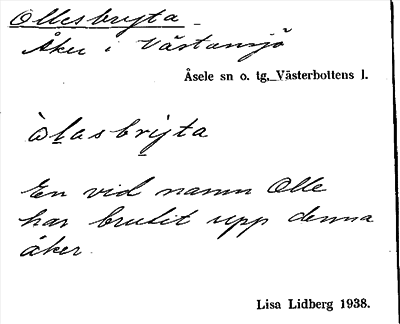 Ollesbryta
Åker i Västansjö
Åsele sn o. tg. Västerbottens l.
òlasbrijta
En vid namn Olle
har brutit upp denna
åker.
Lisa Lidberg 1938.